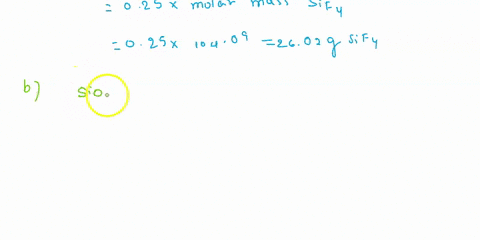 = 0.25 x molar mass SiF4
= 0.25 x 104.09 = 26.02 g SiF4
b) SiO.